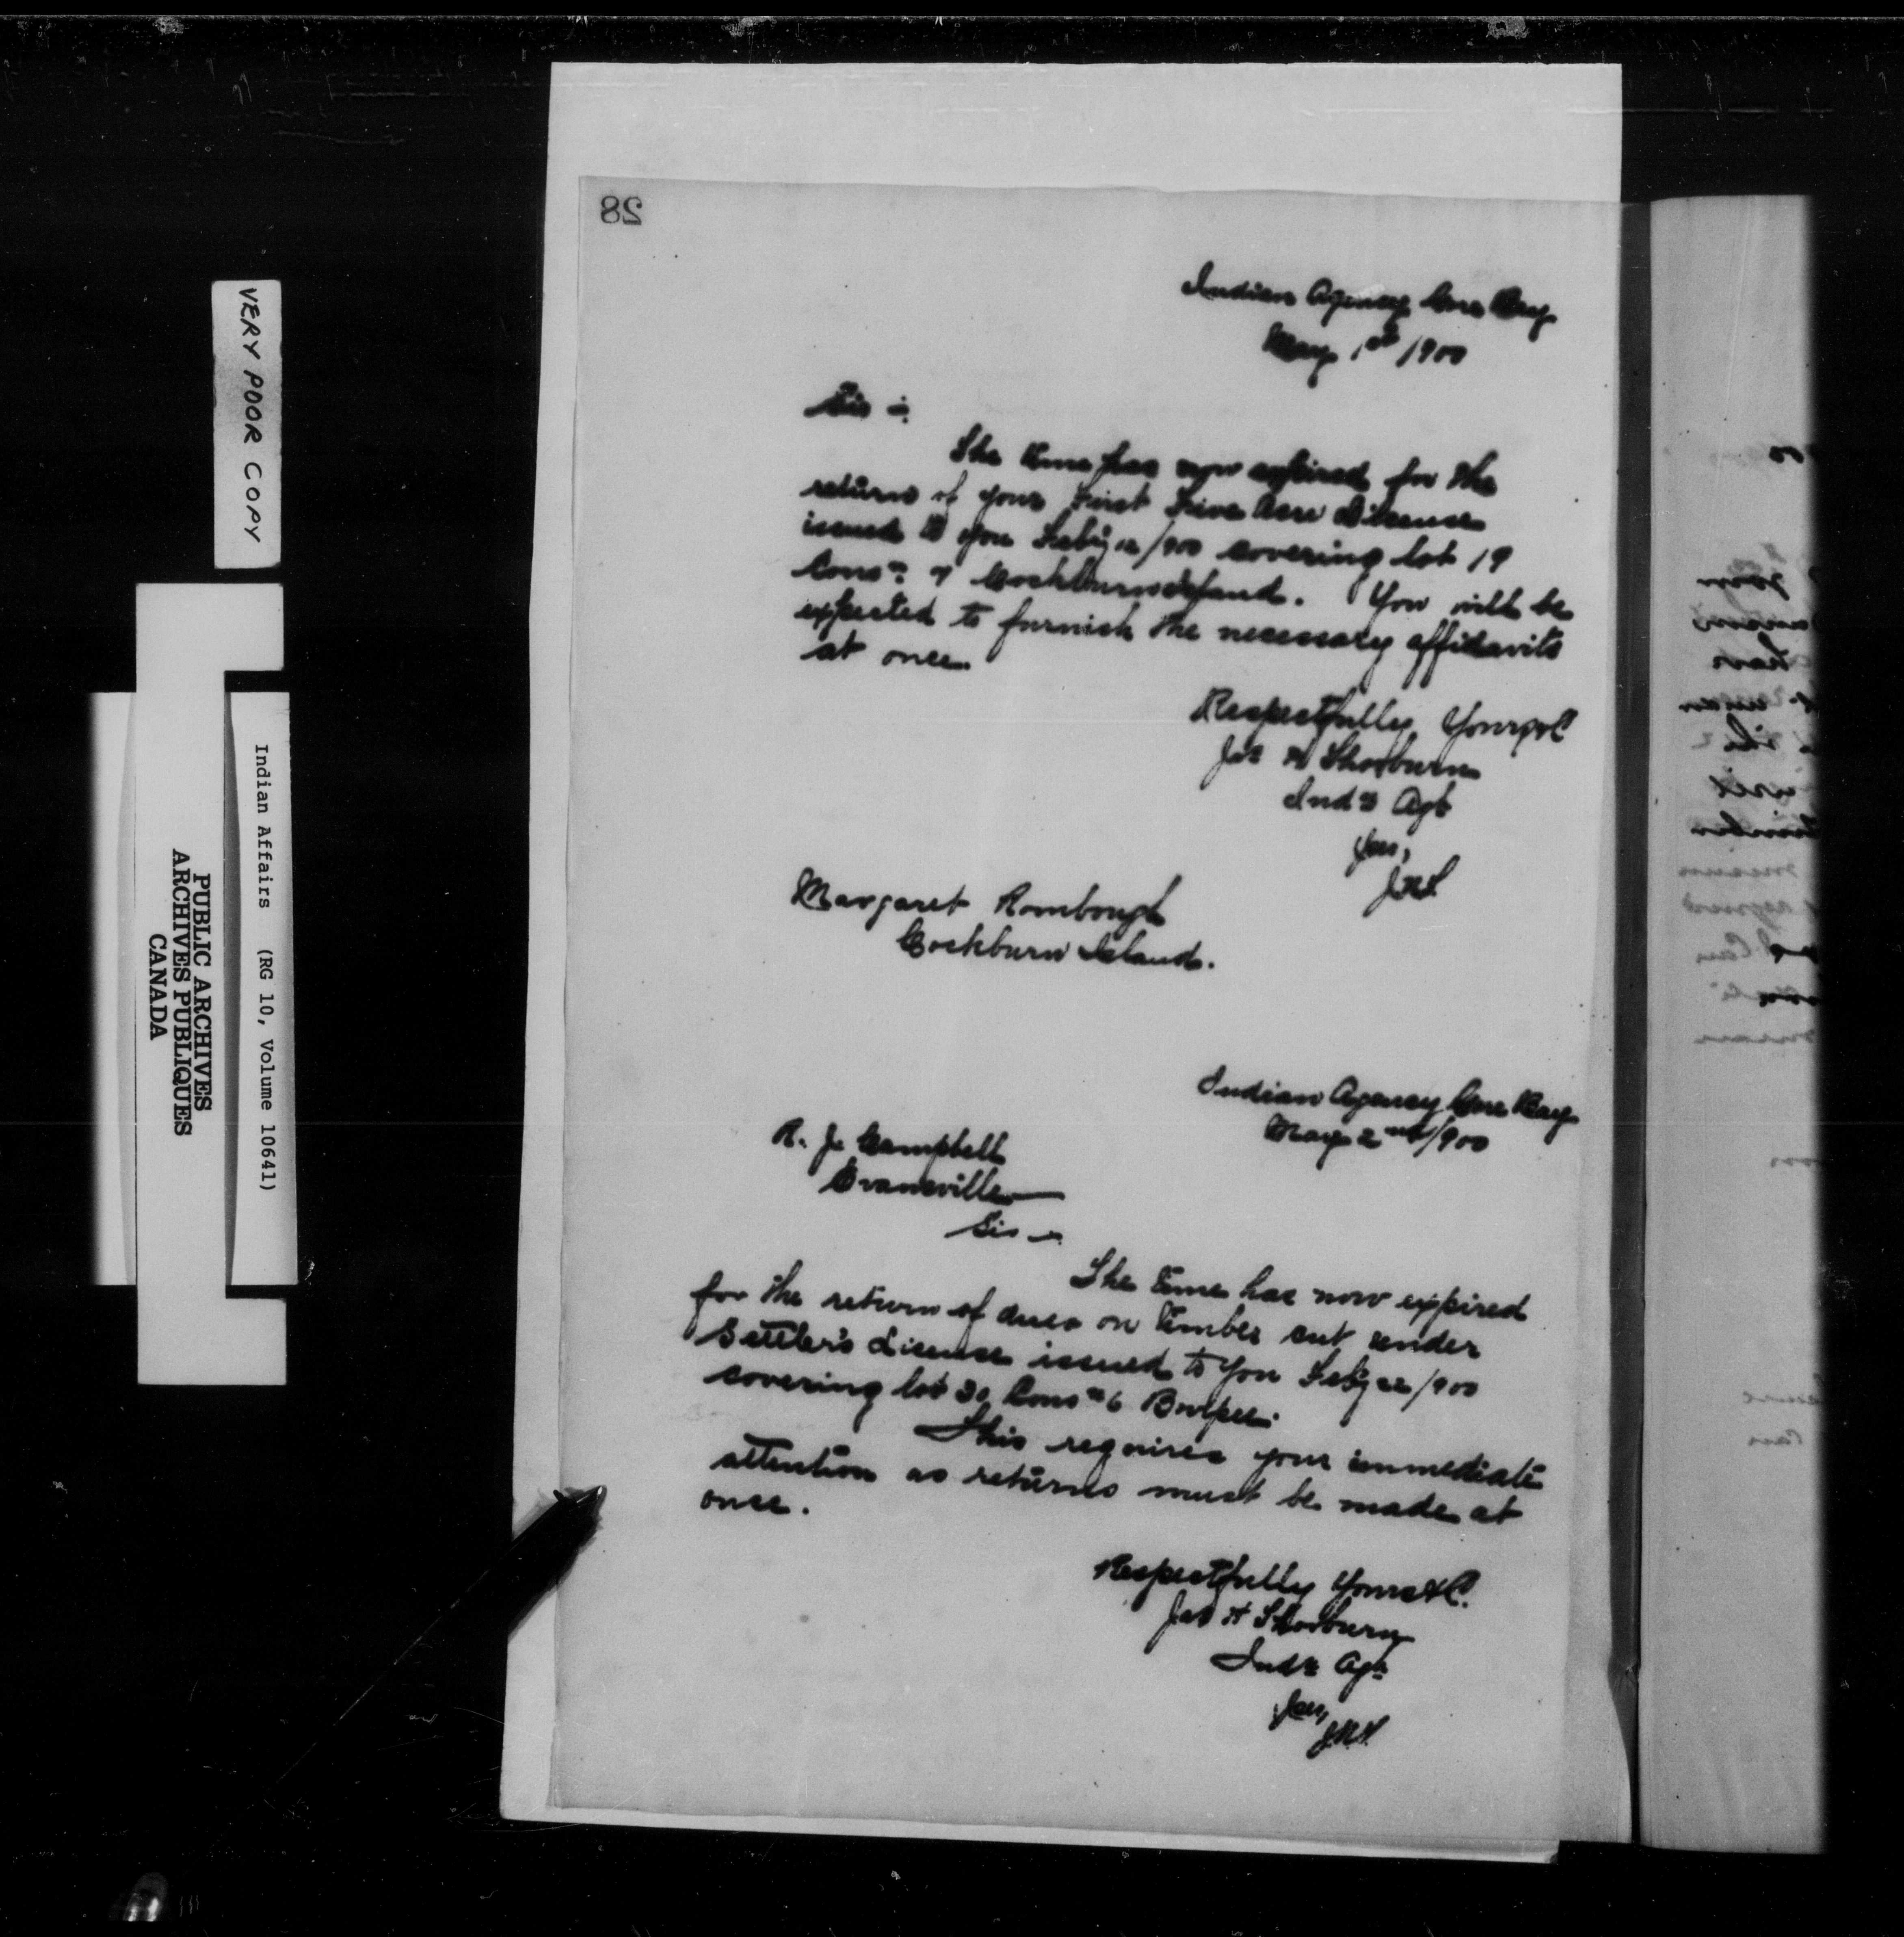 28
Indian Agency Gore Bay
May 1st 1900
Sir :-
The time has now expired for the
return of your First Five Acre License
issued to you Feby 12/900 covering lot 19
Conn. 7 Cockburn Island. You will be
expected to furnish the necessary affidavits
at once
Respectfully Yours &c
Jas H Thorburn
Ind. Agt
Per,
Margaret Rombough
Cockburn Island.
Indian Agency Gore Bay
May 2nd/900
R. J. Campbell
Evansville
Sir :-
The time has now expired
for the return of dues on timber cut under
Settler's License issued to you Feby 22/900
covering lot 30 Conn 6
This requires your immediate
attention as returns must be made at
once.
Respectfully Yours &C.
Jas H Thorburn
Ind. Agt
Per,
VERY POOR COPY
Indian Affairs (RG 10, Volume 10641)
PUBLIC ARCHIVES
ARCHIVES PUBLIQUES
CANADA